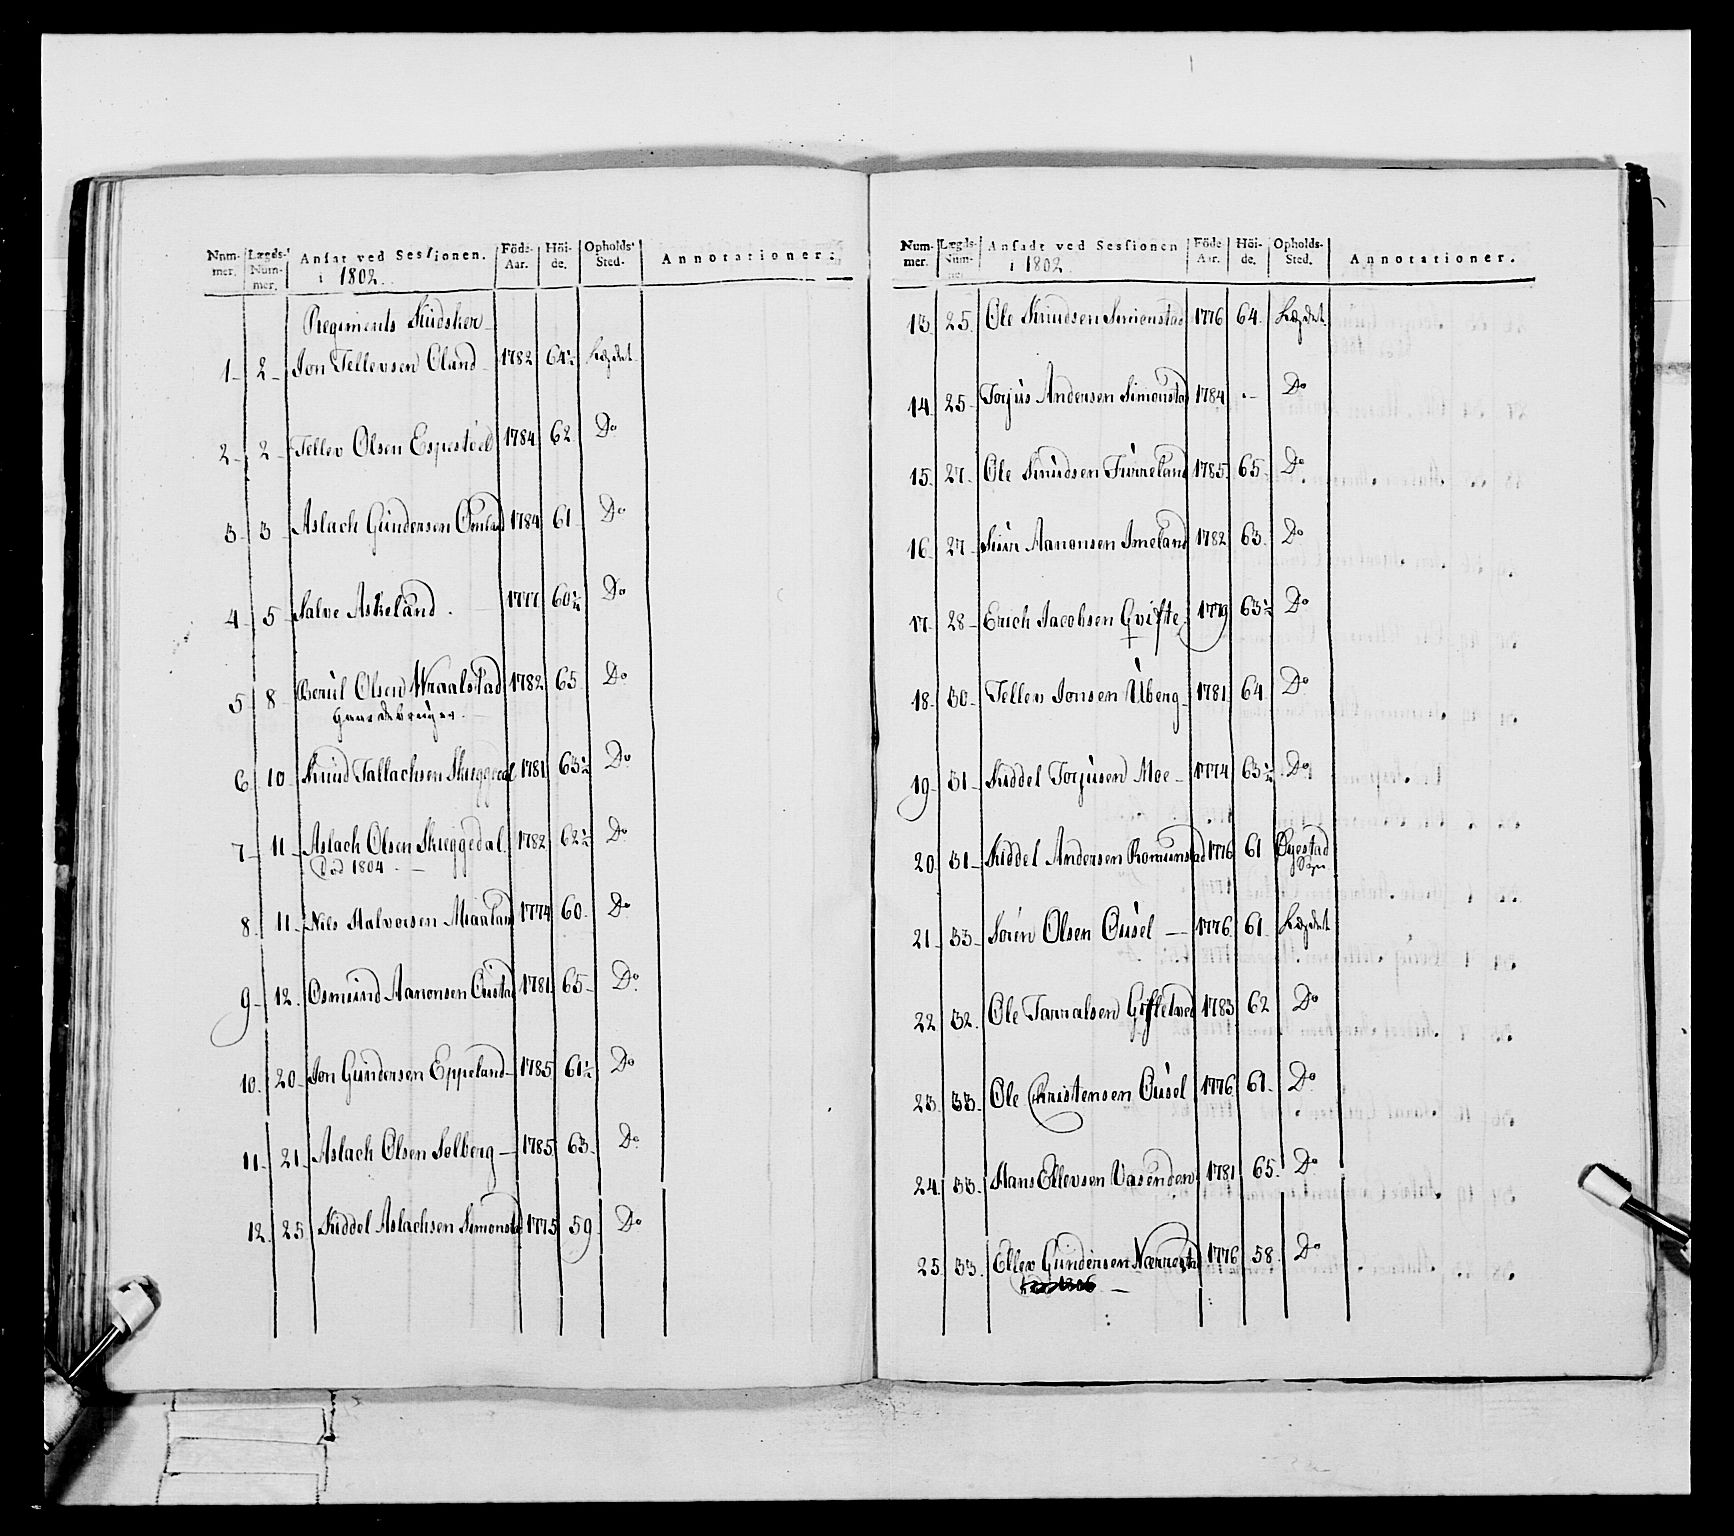 Num-mer. Lægds-Num-mer. Ansat ved Sessionen. i 1802. Föde-Aar. Höi-de. Opholds-Sted. Annotationer.
Regiments Kudsker
1 2 Jon Tellevsen Oland 1782 64½ Lægdet
2 2 Tellev Olsen Espestöel 1784 62 Do
3 3 Aslach Gundersen Omland 1784 61 Do
4 5 Salve Askeland 1777 60¼ Do
5 8 Berul Olsen Wraalstad 1782 65 Do
Gaardebruger
6 10 Knud Tallachsen Skieggedal 1781 63½ Do
7 11 Aslach Olsen Skieggedal 1782 62½ Do
Död 1804
8 11 Nils Halvorsen Miaaland 1774 60 Do
9 12 Osmund Aanonsen 1781 65 Do
10 20 Jon Gundersen Eppeland 1785 61½ Do
11 21 Aslach Olsen Selberg 1785 63 Do
12 25 Kiddel Aslachsen Simonstad 1775 59 Do
Num-mer. Lægds-Num-mer. Ansadt ved Sessionen i 1802 Föde Aar. Höi-de. Opholds-Sted. Annotationer.
13 25 Ole Knudsen Simonstad 1776 64 Lægdet
14 25 Torjus Andersen Simonstad 1784 - Do
15 27 Ole Knudsen Furreland 1785 65 Do
16 27 Aanonsen Imeland 1782 63 Do
17 28 Erich Jacobsen Gvifte 1779 63½ Do
18 30 Tellev Jonsen Uberg 1781 64 Do
19 31 Kiddel Torjusen Moe 1774 63¼ Do
20 31 Kiddel Andersen Romunstad 1776 61 Øyestad Sogn
21 33 Sören Olsen Ousel 1776 61 Lægdet
22 32 Ole Tarralsen 1783 62 Do
23 33 Ole Christensen Ousel 1776 61 Do
24 33 Hans Ellevsen Vasenden 1781 65 Do
25 33 Ellev Gundersen 1776 58 Do